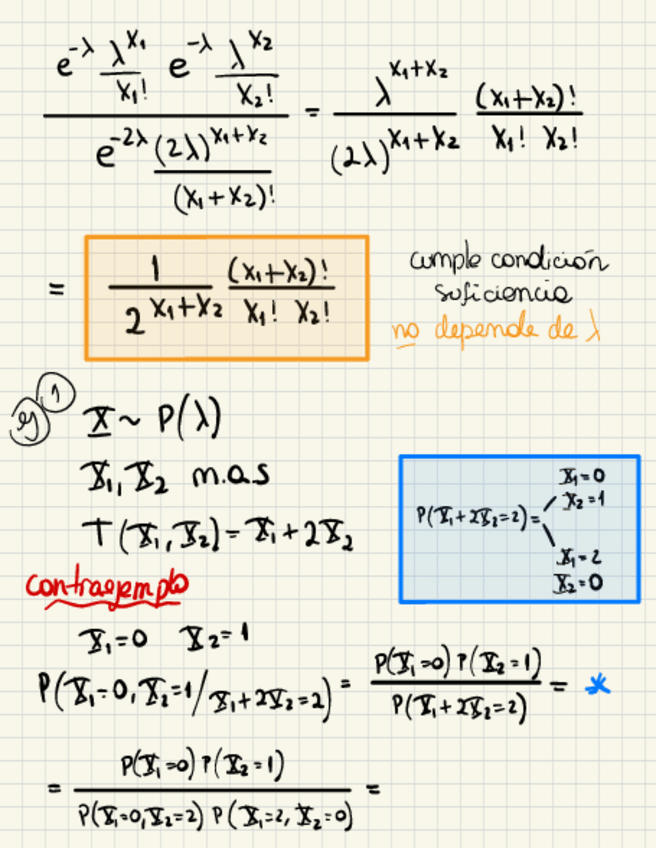 e^{-λ} λ^{x₁}/x₁! e^{-λ} λ^{x₂}/x₂! / e^{-2λ} (2λ)^{x₁+x₂}/(x₁+x₂)! = λ^{x₁+x₂}/(2λ)^{x₁+x₂} (x₁+x₂)!/x₁! x₂!
= 1/2^{x₁+x₂} (x₁+x₂)!/x₁! x₂!
cumple condición
suficiencia
no depende de λ
ej 1
X ~ P(λ)
X₁, X₂ m.a.s
T(X₁, X₂) = X₁ + 2X₂
P(X₁+2X₂=2)=
X₁=0
X₂=1
X₁=2
X₂=0
contraejemplo
X₁=0 X₂=1
P(X₁=0, X₂=1/X₁+2X₂=2) = P(X₁=0) P(X₂=1)/P(X₁+2X₂=2) = *
= P(X₁=0) P(X₂=1)/P(X₁=0, X₂=2) P(X₁=2, X₂=0) =